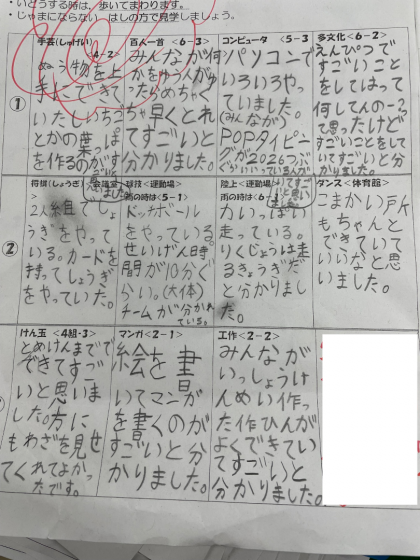 ・いどうする時は、歩いてまわります。
・じゃまにならない はしの方で見学しましょう。
①
手芸(しゅげい)
<4-2>
ぬう物を上
手にできて
いたしいちご
とかの葉っぱ
を作るのがす
百人一首 <6-3>
みんなが何
かをゆう人がゆ
ったらめちゃく
ちゃ早くとれ
てすごいと
分かりました。
コンピュータ <5-3
パソコンで
いろいろやっ
ていました。
(みんなが)
POPタイピン
グが2026つぶ
ぐがいいっている人が
多文化<6-2>
えんぴつで
すごいこと
をしてはって
何してんの~?
て思ったけど
すごいことをして
いてすごいと分
かりました。
②
将棋(しょうぎ)
>
2人組でしょ
うぎをやって
いる。カードを
持ってしょうぎ
をやっていた。
球技<運動場>
雨の時は<5-1>
ドッチボール
をやっている。
せいげん時
間が10分ぐ
らい。(大体)
チームが分かれ
ている。
陸上<運動場>
雨の時は<6-
力いっぱい
走っている。
りくじょうは走
るきょうぎだ
と分かりまし
た。
ダンス<体育館>
こまかい所
もちゃんと
できていて
いいなと思
いました。
けん玉 <4組・3>
とめけんまでで
できてすご
いと思いま
した。方に
もわざを見せ
てくれてよかっ
たです。
マンガ<2-1>
絵を書
いてマンガ
を書くのが
すごいと分
かりました。
工作<2-2>
みんなが
いっしょうけ
んめい作っ
た作ひんが
よくできてい
てすごいと
分かりました。